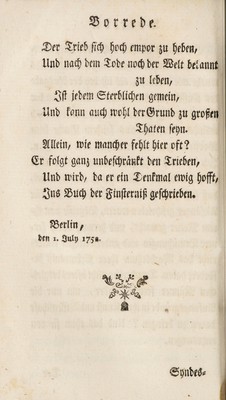 Vorrede.
Der Trieb sich hoch empor zu heben,
Und nach dem Tode noch der Welt bekannt
zu leben,
Ist jedem Sterblichen gemein,
Und kann auch wohl der Grund zu großen
Thaten seyn.
Allein, wie mancher fehlt hier oft?
Er folgt ganz unbeschränkt den Trieben,
Und wird, da er ein Denkmal ewig hofft,
Ins Buch der Finsterniß geschrieben.
Berlin,
den 1. July 1752.
Syndes-